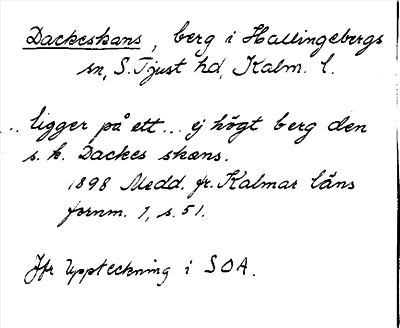 Dackeskans, berg i Hallingebergs
sn, S. Tjust hd, Kalm. l.
.. ligger på ett... ej högt berg den
s. k. Dackes skans.
1898 Medd. fr. Kalmar läns
fornm. 1, s. 51.
Jfr Uppteckning i SOA.